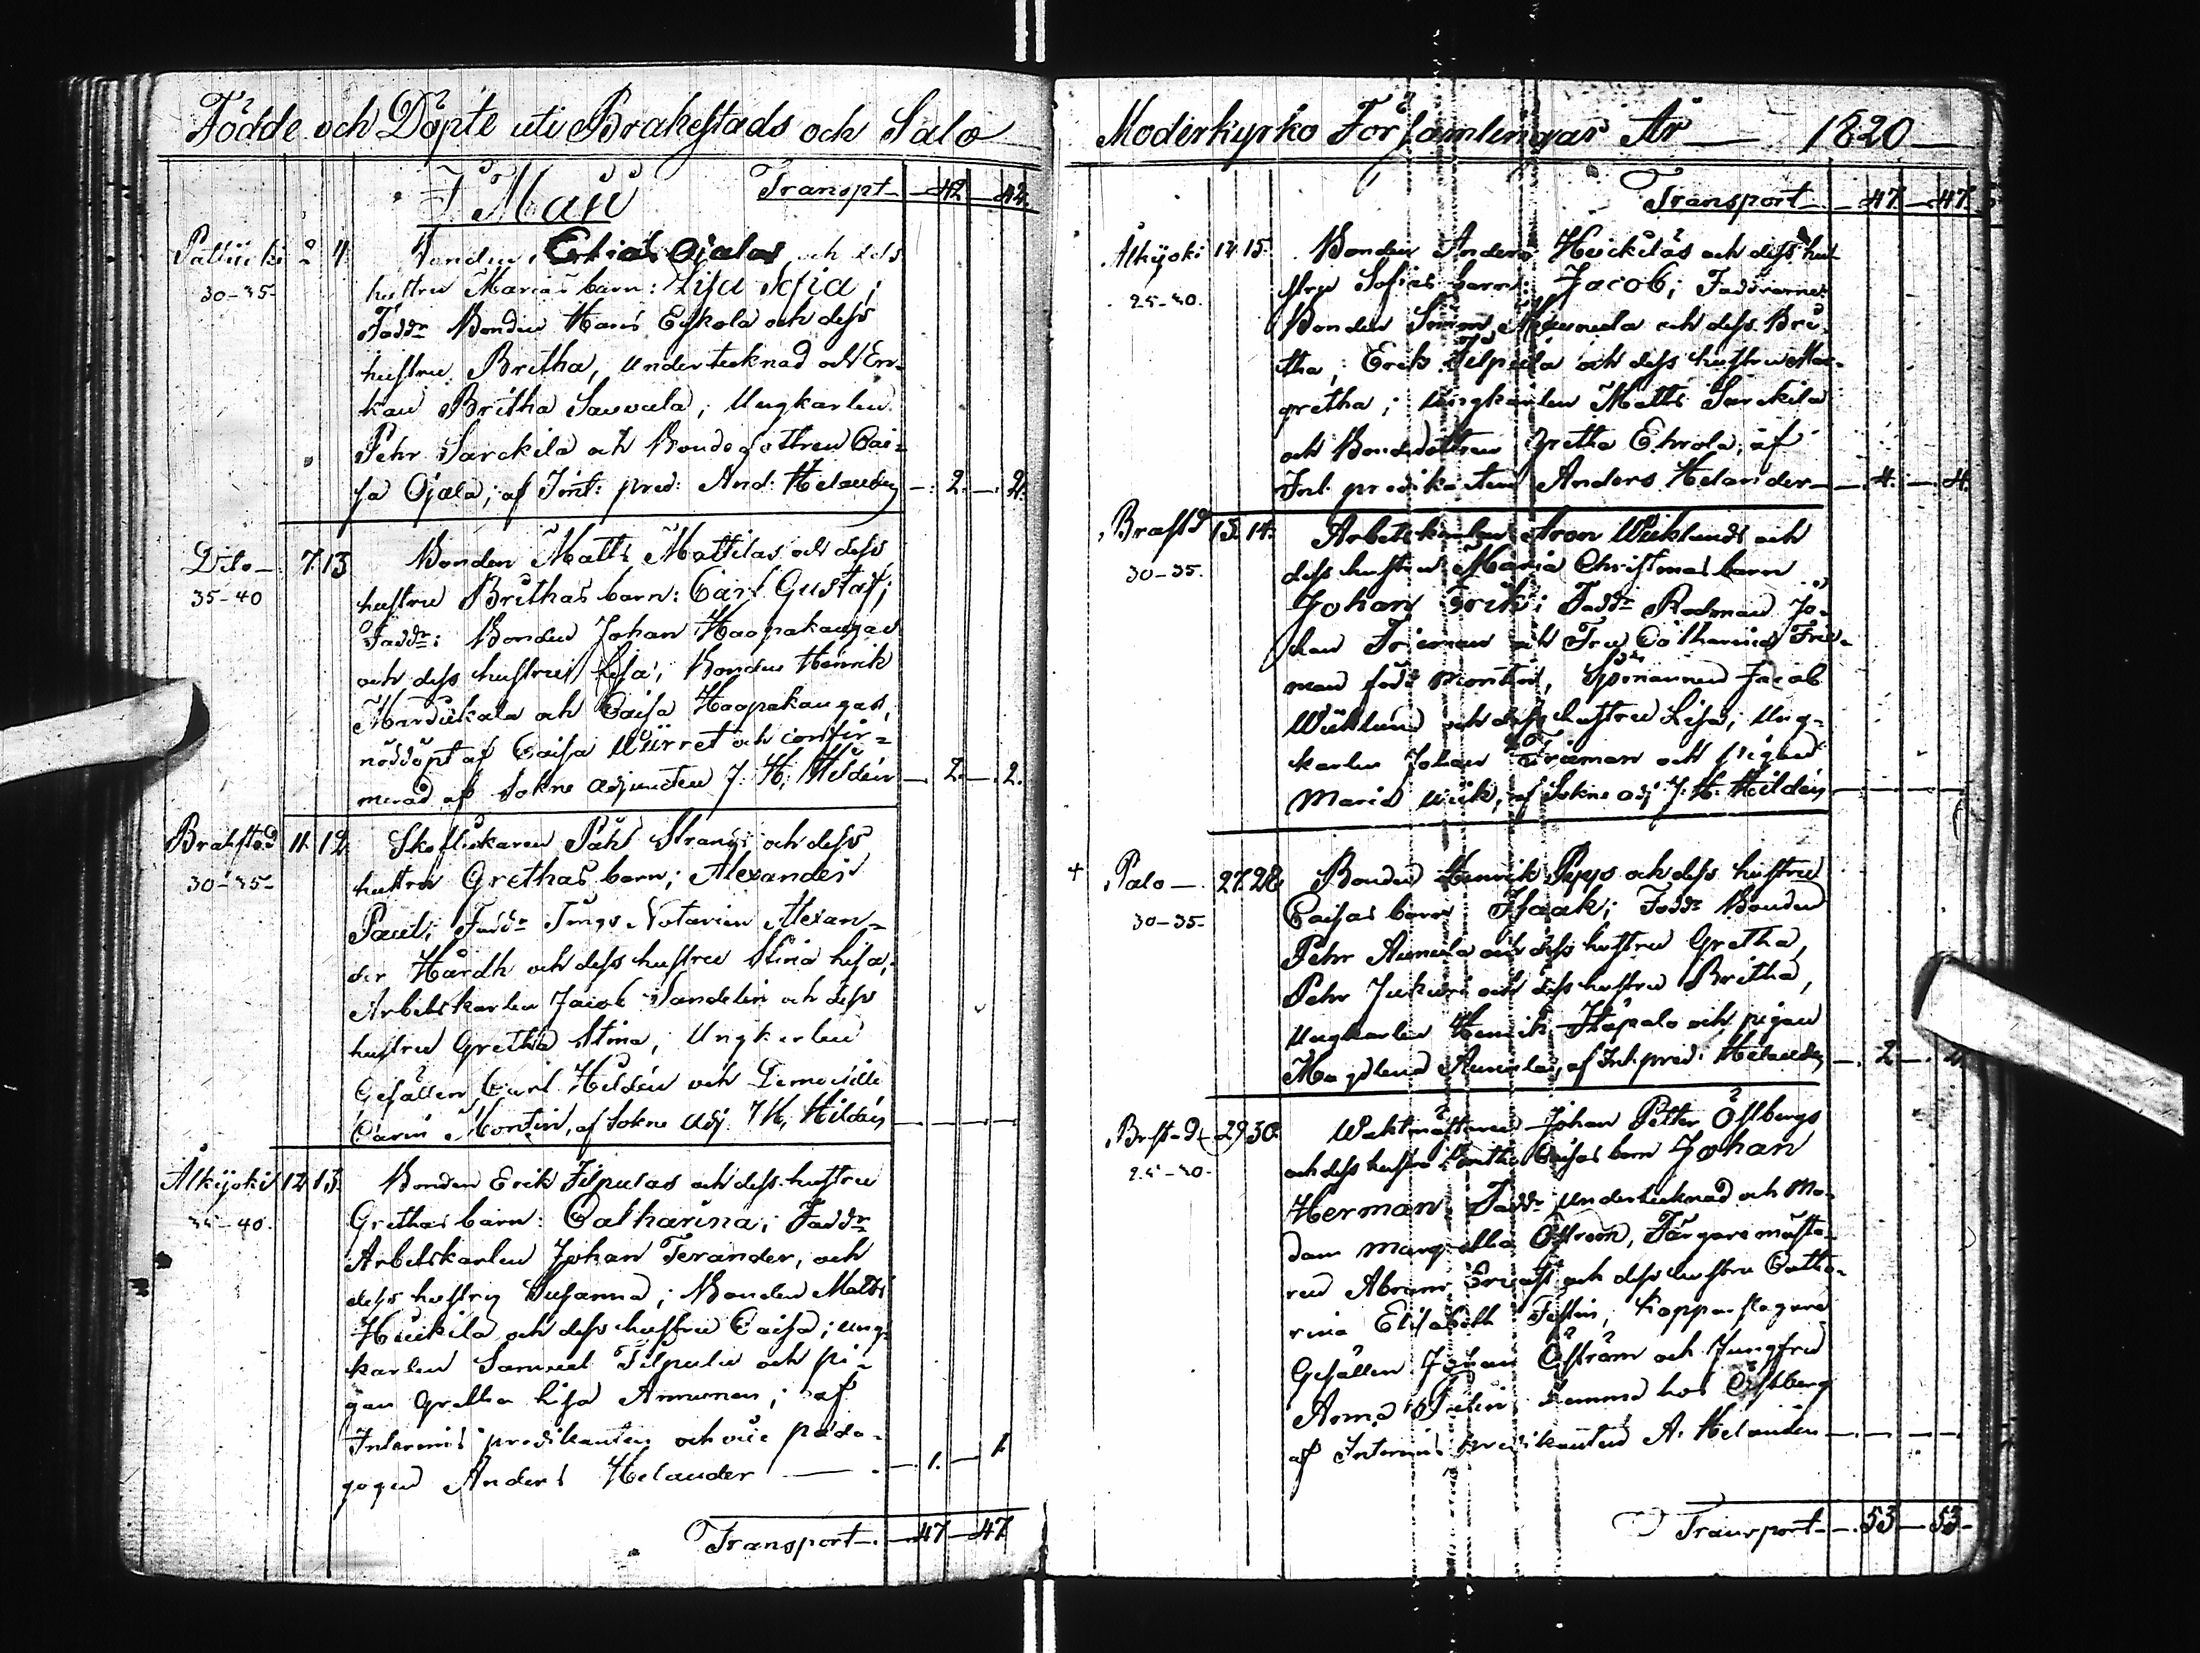 Födde och Döpte uti Brahestads och Salo
I Maij Transpt 42 42.
Pattiocki 2 4 Bonden Erkias Ojalas och dess
30-35- hustru Marias barn: Lisa Sofia;
Faddr Bonden Hans Eskola och dess
hustru Britha, undertecknad och En-
kan Britha Sauvula; Ungkarlen
Pehr Sarckila och Bondedottren Cai-
sa Ojala; af Int: pred: And: Helander 2. 2.
Dito 7. 13 Bonden Matts Mattilas och dess
35-40 hustru Brithas barn: Carl Gustaf;
Faddr: Bonden Johan Haapakangas
och dess hustru Lisa; Bonden Henrik
och Caisa Haapakangas,
nöddöpt af Caisa Wirret och confir=
merad af Sokne Adjuncten J. H. Hildén 2. 2.
Brahestad 11. 12 Skoflickaren Påhl Strangs och dess
30-35- hustru Grethas barn; Alexander
Paul; Faddr Tings Notarien Alexan=
der Hårdh och dess hustru Stina Lisa;
Arbetskarlen Jacob Sandelin och dess
hustru Gretha Stina; Ungkarlen
Gesällen Carl Hildén och Demoiselle
Carin Montin, af Sokne Adj. J. H. Hildén
Alkijoki 12 13. Bonden Erik Filpulas och dess hustru
35-40. Grethas barn: Catharina; Faddr
Arbetskarlen Johan Terander, och
dess hustru Susanna; Bonden Matts
Heickilä och dess hustru Caisa; ung-
karlen Samuel Filpula och pi-
gan Gretha Lisa Annunen; af
Interims predikanten och vice päda-
gogen Anders Helander 1. 1.
Transport 47 47

Moderkyrko Församlingar År 1820
Transport 47 47.
Alkijoki 14. 15. Bonden Anders Heickiläs och dess hu-
25-30. stru Sofias barn: Jacob; Faddrarne
Bonden Simon och dess Bri-
tha; Erik Filpula och dess hustru Mar-
gretha; Ungkarlen Matts Sarckila
och Bondedottren Gretha Ehrola; af
Int. predikanten Anders Helander 4. 4.
Brastd 13. 14. Arbetskarlen Aron Wiklunds och
30-35. dess hustru Maria Christinas barn
Johan Erik; Faddr Rodman Jo-
han Frieman och Fru Catharina Frie-
man född Montin, Sjömannen Jacob
Wiklund och dess hustru Lisa; Ung-
karlen Johan Frieman och pigan
Maria Wiik, af Sokne Adj J. H. Hildén
+ Palo 27. 28. Bonden Henrik Pyys och dess hustru
30-35- Caisas barn Isaak; Faddr Bonden
Pehr Aumala och dess hustru Gretha,
Pehr Jukuri och dess hustru Britha,
Ungkarlen Henrik Htapalo och pigan
Magdlena Aumala, af Int. pred: Helander 2 2.
Brstad 29 30. Waktmästaren Johan Petter Östbergs
25-30. och dess hustru Britha Caisas barn Johan
Herman Faddr; undertecknad och Ma-
dam Margretha Öström, Färgaremästa-
ren Abram och dess hustru Catha-
rina Elisabeth Kopparslagare
Gesällen Johan Öström och Jungfru
Anna hemma hos Östberg
af Interims predikanten A. Helander
Transport 53 53